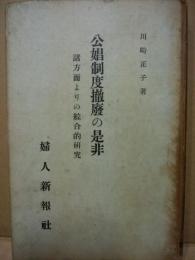 川崎正子著
公娼制度撤廢の是非
諸方面よりの綜合的研究
婦人新報社